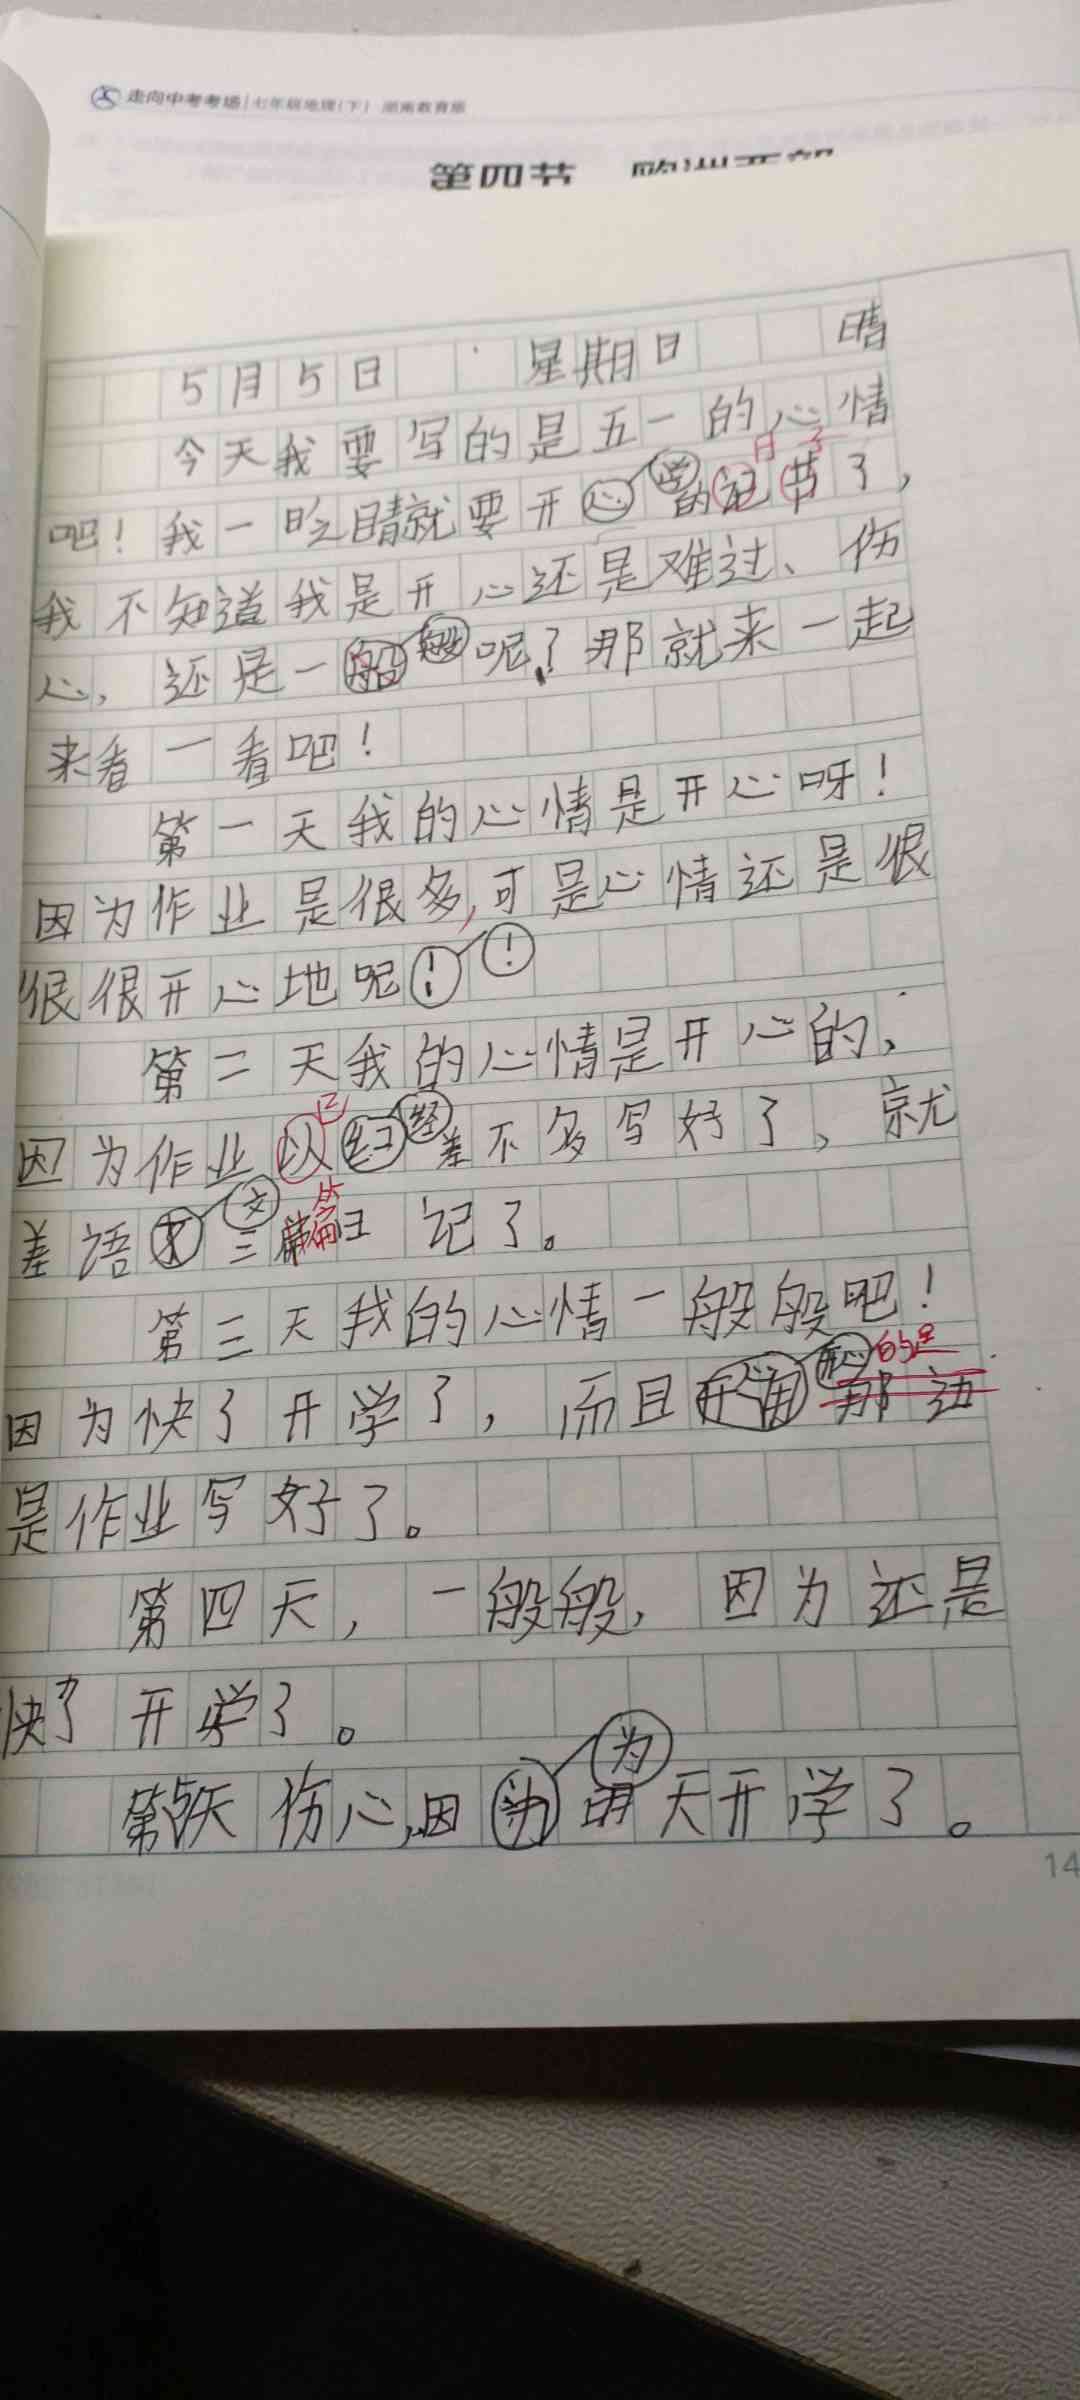 走向中考考场 七年级地理(下) 湖南教育版
第四节
5月5日 星期日 晴
今天我要写的是五一的心情
吧！我一眨眼睛就要开学的日子了，
我不知道我是开心还是难过、伤
心，还是一般呢？那就来一起
来看一看吧！
第一天我的心情是开心呀！
因为作业是很多,可是心情还是很
很很开心地呢！
第二天我的心情是开心的、
因为作业已经差不多写好了，就
差语文三篇日记了。
第三天我的心情一般般吧！
因为快了开学了，而且开心的是
那边
是作业写好了。
第四天，一般般，因为还是
快了开学了。
第5天伤心,因为明天开学了。
14